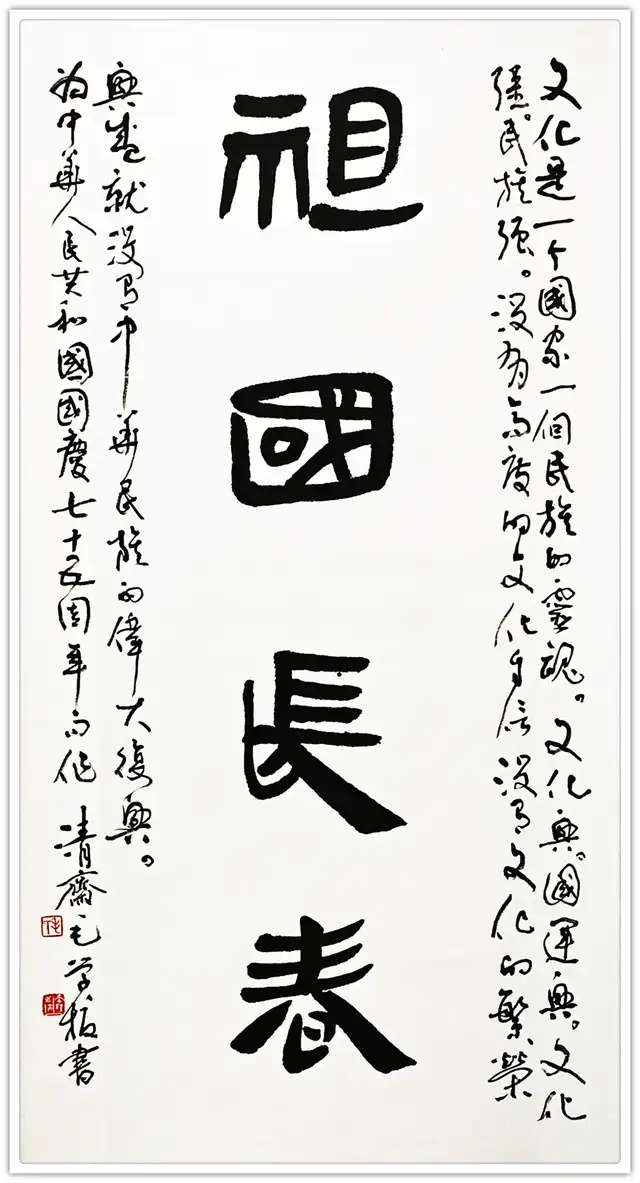 文化是一个國家一個民族的靈魂。文化興。國運興。文化
強。民族強。没有高度的文化自信没有文化的繁榮
祖國長春
興盛就没有中華民族的偉大復興。
為中華人民共和國國慶七十五周年而作 清齋毛学書